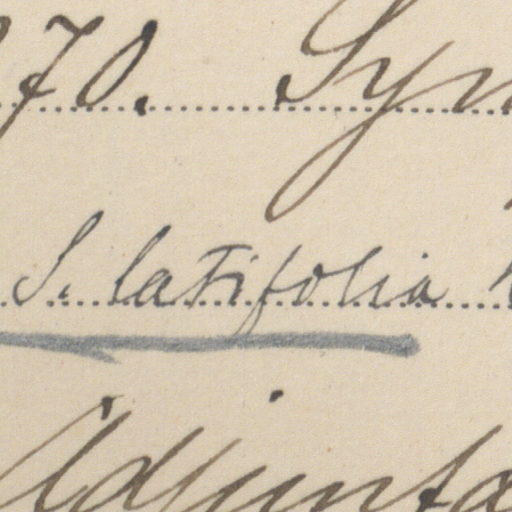 70. Sym
S. latifolia
Adjunta